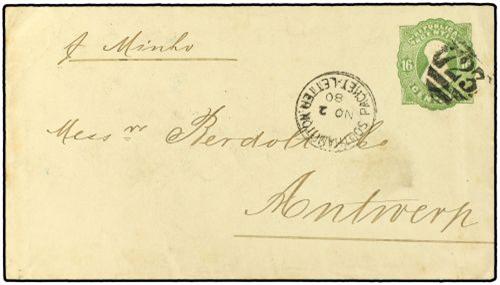 p Minho
REPUBLICA
ARGENTINA
16
SOUTHAMPTON
PACKET-LETTER
NO 2
80
Mess rs Berdolt & Co
Antwerp